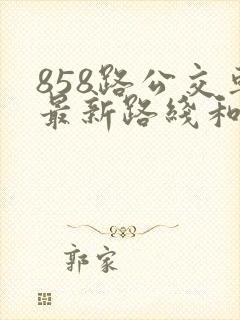 858路公交
最新路线和
郭家